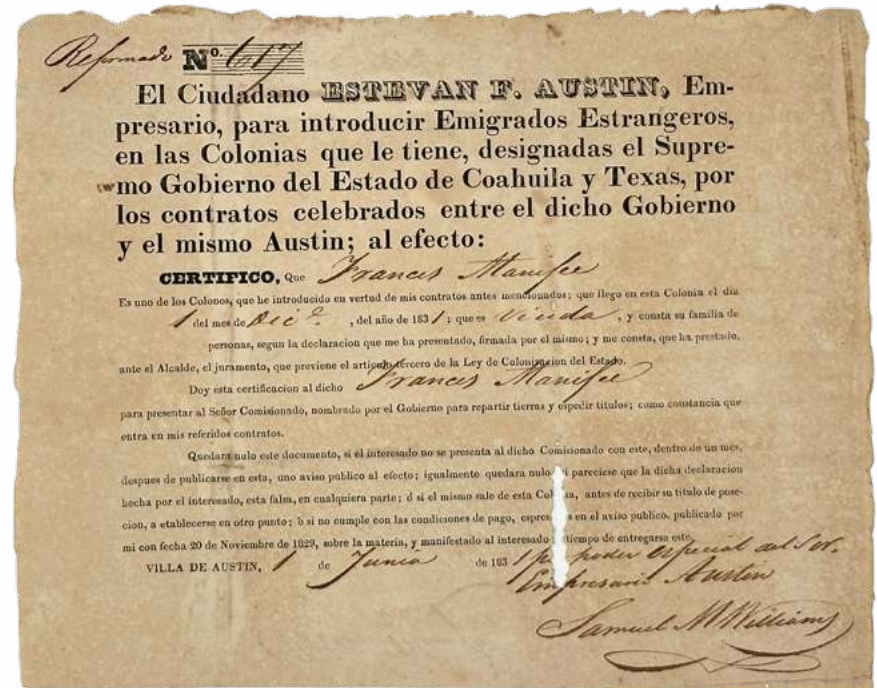 Reformado No. 617
El Ciudadano ESTEVAN F. AUSTIN, Em-
presario, para introducir Emigrados Estrangeros,
en las Colonias que le tiene, designadas el Supre-
mo Gobierno del Estado de Coahuila y Texas, por
los contratos celebrados entre el dicho Gobierno
y el mismo Austin; al efecto:
CERTIFICO, Que Frances Manifee
Es uno de los Colonos, que he introducido en vertud de mis contratos antes mencionados; que llego en esta Colonia el dia
1 del mes de Dice. , del año de 1831; que es Viuda , y consta su familia de
personas, segun la declaracion que me ha presentado, firmada por el mismo; y me consta, que ha prestado,
ante el Alcalde, el juramento, que previene el articulo tercero de la Ley de Colonizacion del Estado.
Doy esta certificacion al dicho Frances Manifee
para presentar al Señor Comisionado, nombrado por el Gobierno para repartir tierras y espedir titulos; como constancia que
entra en mis referidos contratos.
Quedara nulo este documento, si el interesado no se presenta al dicho Comisionado con este, dentro de un mes,
despues de publicarse en esta, uno aviso publico al efecto; igualmente quedara nulo pareciese que la dicha declaracion
hecha por el interesado, esta falsa, en cualquiera parte; ó si el mismo sale de esta Co a, antes de recibir su titulo de pose-
cion, a etablecerse en otro punto; ó si no cumple con las condiciones de pago, espres s en el aviso publico, publicado por
mi con fecha 20 de Noviembre de 1829, sobre la materia, y manifestado al interesado tiempo de entregarse este.
VILLA DE AUSTIN, 1 de Junio de 1831 por poder especial del Sor.
Empresario Austin
Samuel M Williams